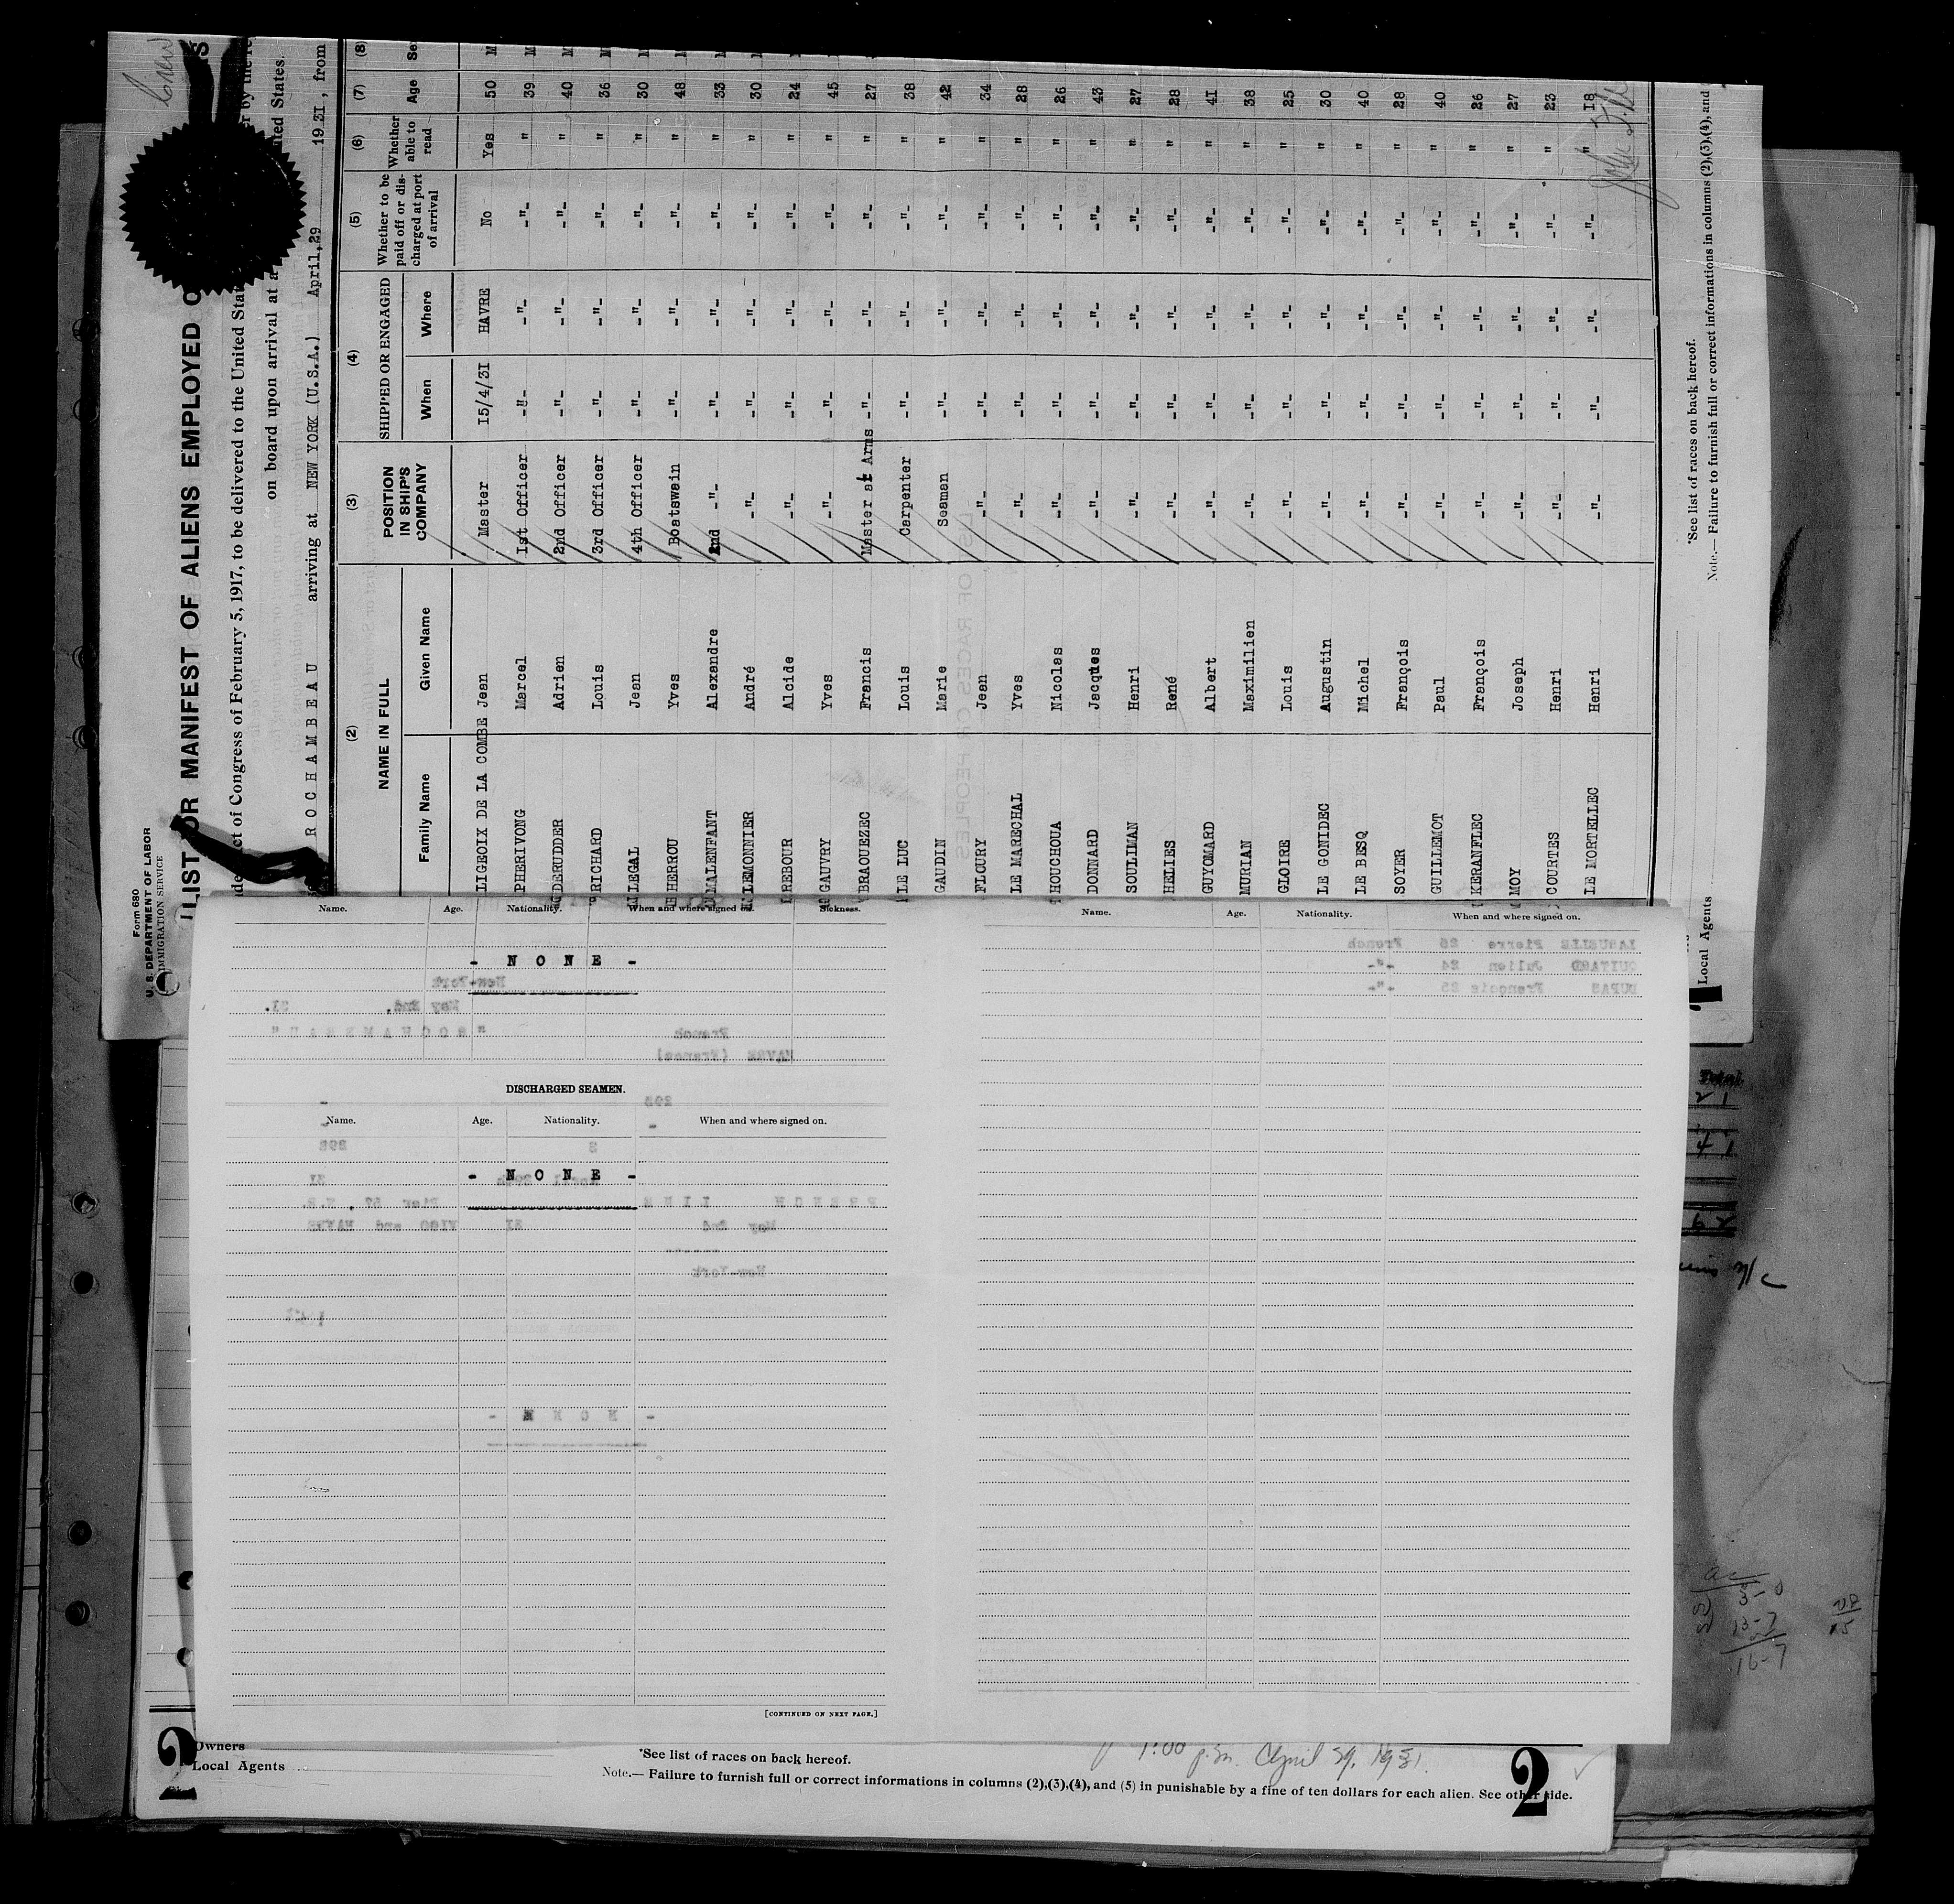 Crew
Form 680
U. S. DEPARTMENT OF LABOR
IMMIGRATION SERVICE
LIST OR MANIFEST OF ALIENS EMPLOYED
Act of Congress of February 5, 1917, to be delivered to the United
on board upon arrival at a
ROCHAMBEAU arriving at NEW YORK (U.S.A.) April,29 1931, from
(2) (3) (4) (5) (6) (7) (8)
NAME IN FULL POSITION IN SHIP'S COMPANY SHIPPED OR ENGAGED Whether to be paid off or discharged at port of arrival Whether able to read Age
Family Name Given Name When Where
LIGEOIX DE LA COMBE Jean Master I5/4/3I HAVRE No Yes 50 M
PHERIVONG Marcel 1st Officer -"- -"- -"- " 39 M
DERUDDER Adrien 2nd Officer -"- -"- -"- " 40 M
RICHARD Louis 3rd Officer -"- -"- -"- " 36 M
LEGAL Jean 4th Officer -"- -"- -"- " 30 M
HERROU Yves Boatswain -"- -"- -"- " 48
MALENFANT Alexandre 2nd -"- -"- -"- -"- " 33
LEMONNIER André -"- -"- -"- -"- " 30
REBOUR Alcide -"- -"- -"- -"- " 24
GAUVRY Yves -"- -"- -"- -"- " 45
BRAOUEZEC Francis Master at Arms -"- -"- -"- " 27
LE LUC Louis Carpenter -"- -"- -"- " 38
GAUDIN Marie Seaman -"- -"- -"- " 42
FLOURY Jean -"- -"- -"- -"- " 34
LE MARECHAL Yves -"- -"- -"- -"- " 28
THOUCHOUA Nicolas -"- -"- -"- -"- " 26
DONNARD Jacques -"- -"- -"- -"- " 43
SOULIMAN Henri -"- -"- -"- -"- " 27
HELIES René -"- -"- -"- -"- " 28
GUYOMARD Albert -"- -"- -"- -"- " 41
MURIAN Maximilien -"- -"- -"- -"- " 38
GLOIRE Louis -"- -"- -"- -"- " 25
LE GONIDEC Augustin -"- -"- -"- -"- " 30
LE BESQ Michel -"- -"- -"- -"- " 40
SOYER François -"- -"- -"- -"- " 28
GUILLEMOT Paul -"- -"- -"- -"- " 40
KERANFLEC François -"- -"- -"- -"- " 26
MOY Joseph -"- -"- -"- -"- " 27
COURTES Henri -"- -"- -"- -"- " 23
LE MORTELLEC Henri -"- -"- -"- -"- " 18
Local Agents
*See list of races on back hereof.
Note.— Failure to furnish full or correct informations in columns (2),(3),(4), and
Name. Age. Nationality. When and where signed on. Sickness.
- N O N E -
DISCHARGED SEAMEN.
Name. Age. Nationality. When and where signed on.
- N O N E -
[CONTINUED ON NEXT PAGE.]
Name. Age. Nationality. When and where signed on.
2
Owners
Local Agents
*See list of races on back hereof.
p.m. April 29, 1931.
Note.— Failure to furnish full or correct informations in columns (2),(3),(4), and (5) in punishable by a fine of ten dollars for each alien. See other side.
2
3-0
13-7
16-7